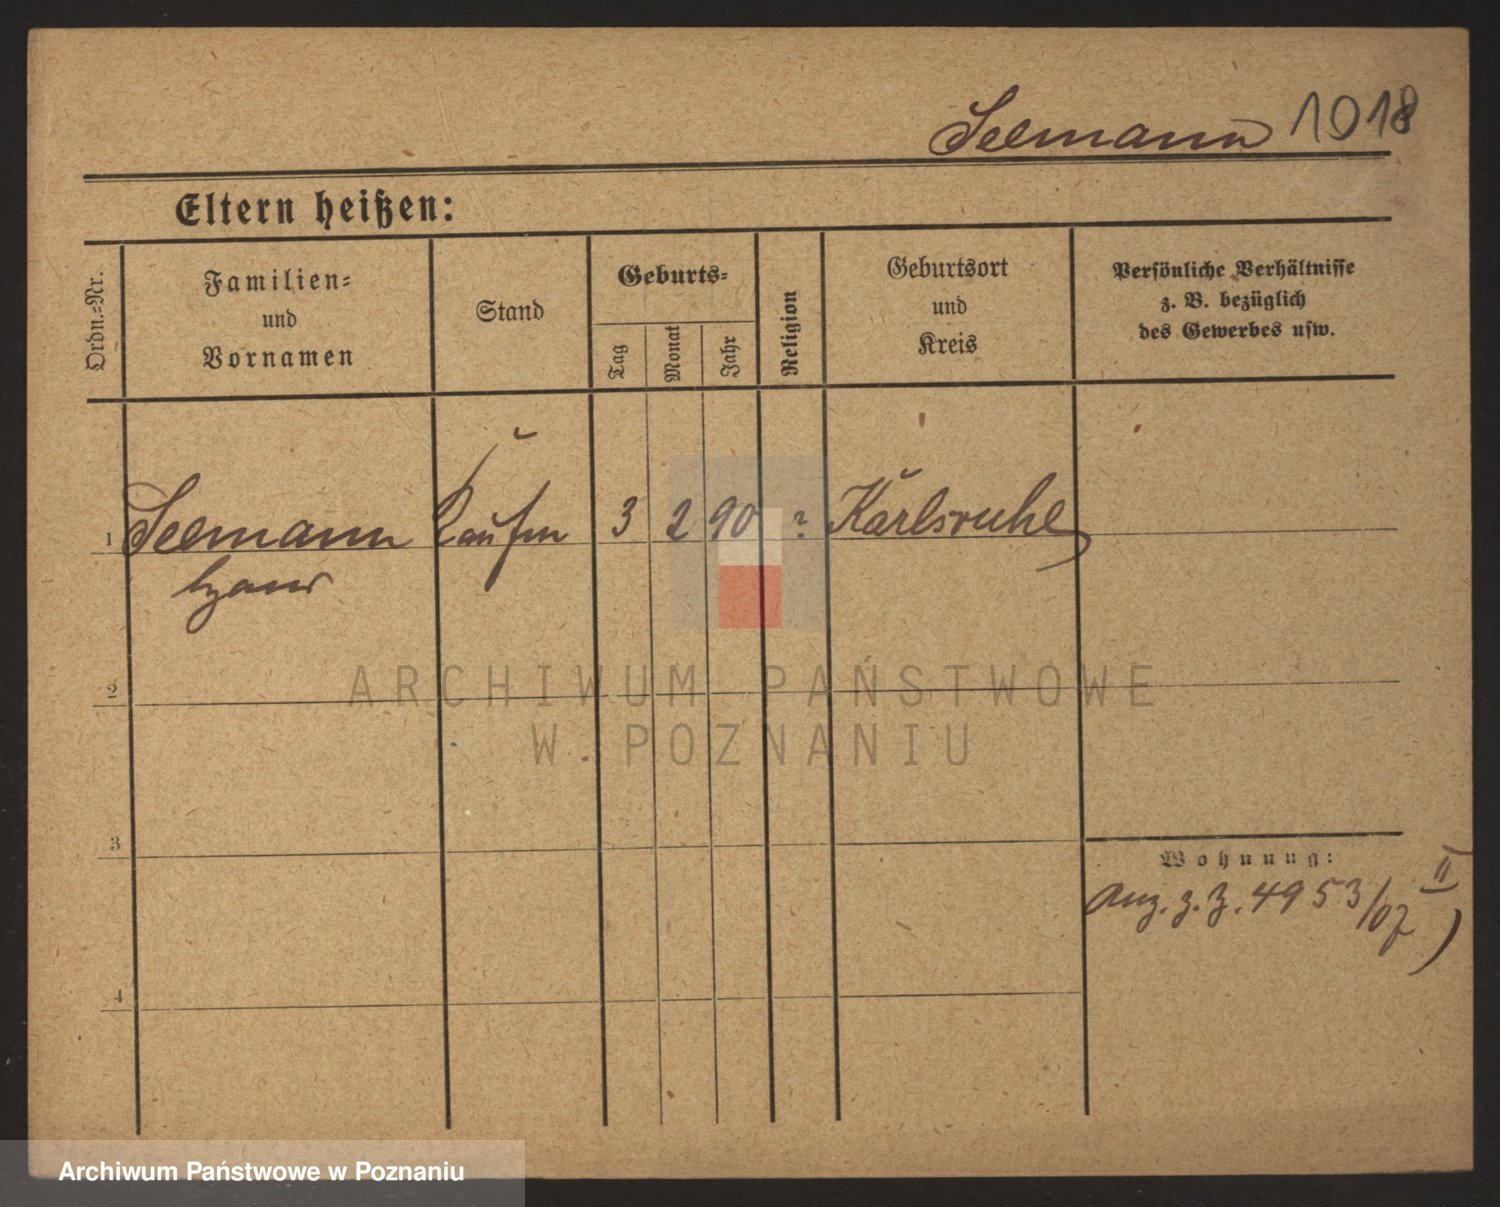 Seemann 1018
Eltern heißen:
Ordn.-Nr.
Familien-
und
Vornamen
Stand
Geburts-
Tag
Monat
Jahr
Religion
Geburtsort
und
Kreis
Persönliche Verhältnisse
z. B. bezüglich
des Gewerbes usw.
1 Seemann Kaufm 3 2 90 ? Karlsruhe
2
3
Wohnung:
Anz. z. Z. 4953/07 II)
4
ARCHIWUM PAŃSTWOWE
W POZNANIU
Archiwum Państwowe w Poznaniu